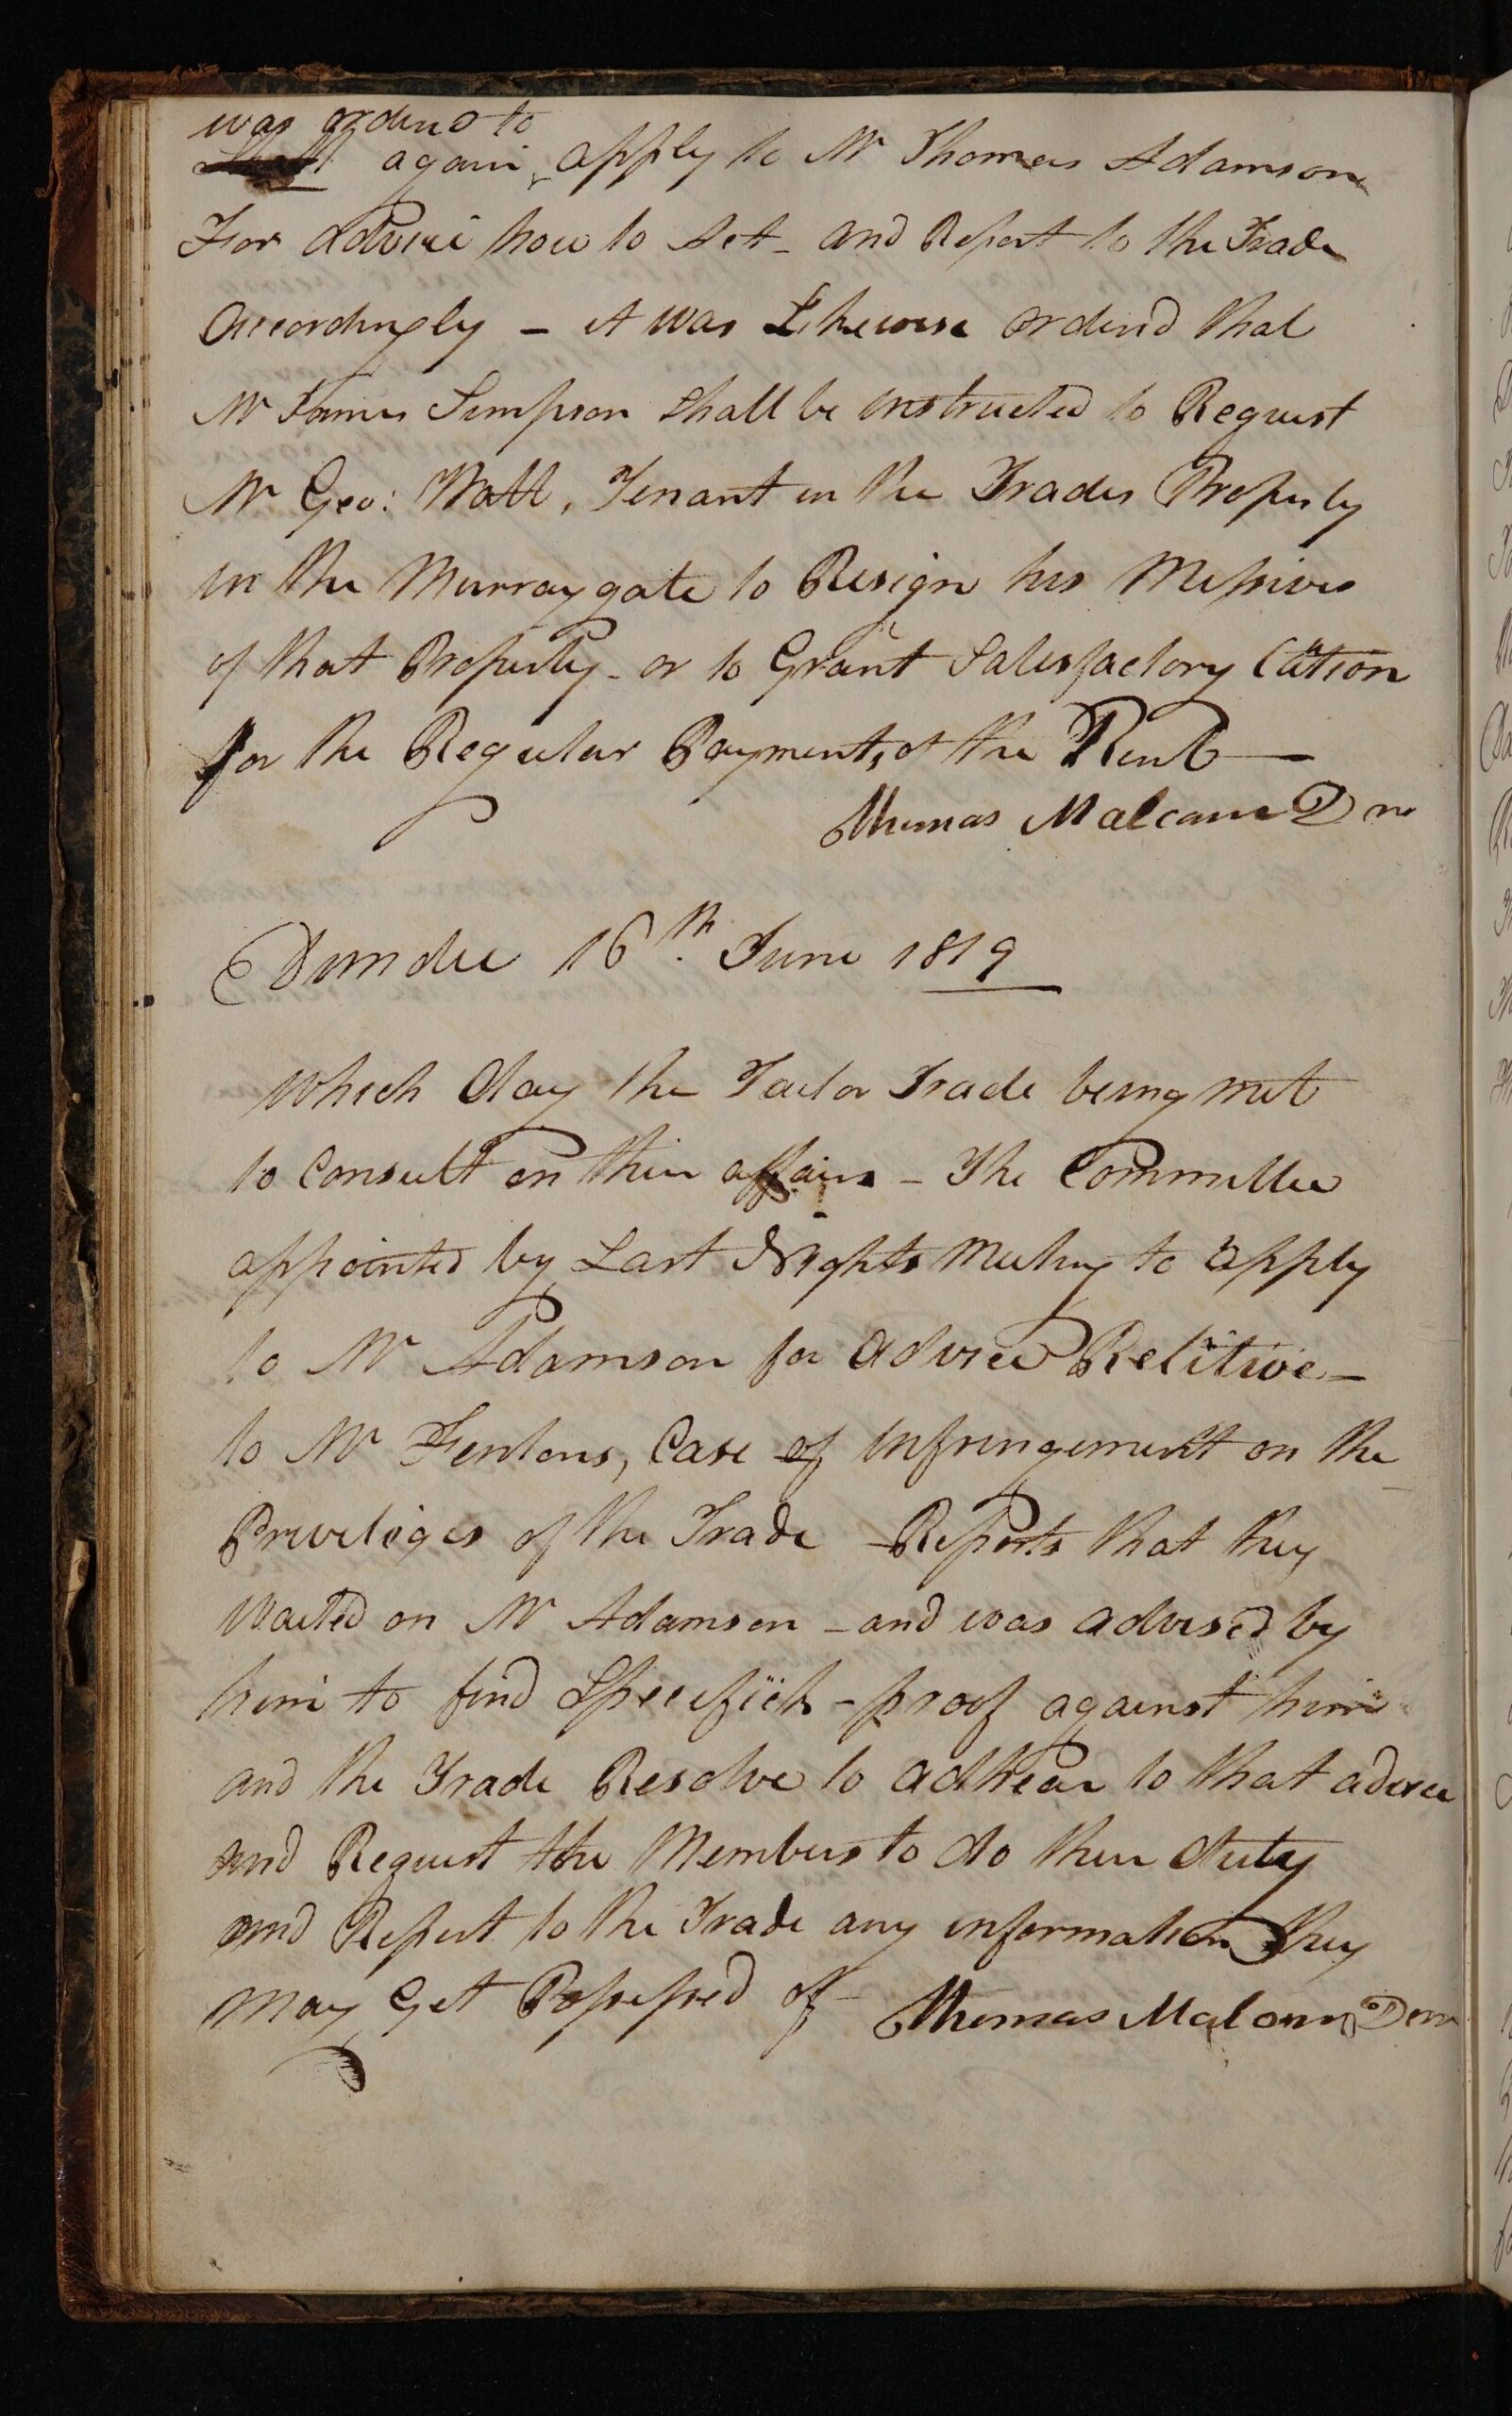 was ordend to
again apply to Mr Thomas Adamson
For advice how to Act - and Report to the Trade
Accordingly - it was Likewise ordend that
Mr James Simpson shall be instructed to Request
Mr Geo: Watt, Tenant in the Trades Property
in the Murraygate to Resign his Missives
of that Property - or to Grant Satisfactory Cation
for the Regular Payment, of the Rent
Thomas Malcam Dn
Dundee 16th June 1819
Which day the Tailor Trade being met
to Consult on their affairs - The Committee
appointed by Last Nights Meeting to apply
to Mr Adamson for advice Relitive -
to Mr Fentons, Case of infringement on the
Priveliges of the Trade - Reports that they
Waited on Mr Adamson - and was advised by
him to find Specifick - proof against him
and the Trade Resolve to adhear to that advice
and Request the Members to do their duty
and Report to the Trade any information they
may Get Possessed of - Thomas Malcam Dcn